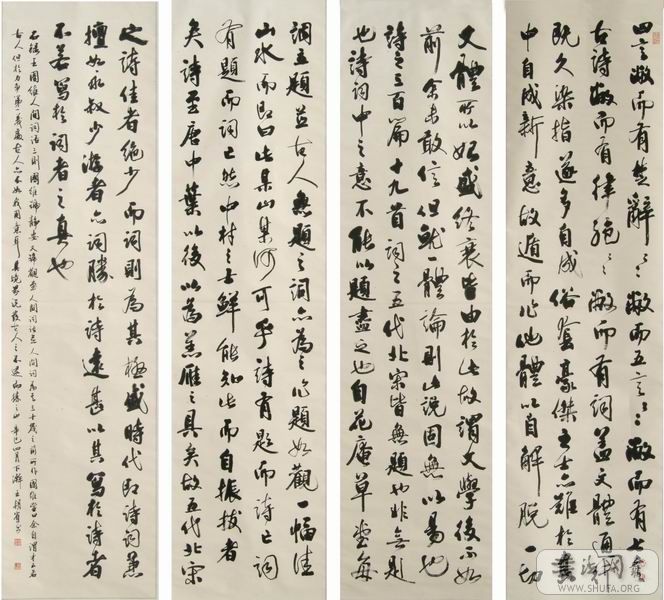 四言敝而有楚辭〻〻敝而五言〻〻敝而有七言
古詩敝而有律絕〻〻敝而有詞蓋文體通行
既久染指遂多自成俗套豪傑之士亦難於其
中自成新意故遁而作他體以自解脫一切
文體所以始盛終衰皆由於此故謂文學後不如
前余未敢信但就一體論則此說固無以易也
詩之三百篇十九首詞之五代北宋皆無題也非無題
也詩詞中之意不能以題盡之也自花庵草堂每
調立題並古人無題之詞亦為之作題如觀一幅佳
山水而即曰此某山某河可乎詩有題而詩亡詞
有題而詞亡然中材之士鮮能知此而自振拔者
矣詩至唐中葉以後以為羔雁之具矣故五代北宋
之詩佳者絕少而詞則為其極盛時代即詩詞兼
擅如永叔少游者亦詞勝於詩遠甚以其寫於詩者
不若寫於詞者之真也
右錄王國維人間詞話三則國維號靜安又號觀堂人間詞話並人間詞為三十歲之前所作國維嘗余自謂才不若
古人但於力爭第一義處古人亦不如我用意耳
書法网
WWW.SHUFA.ORG